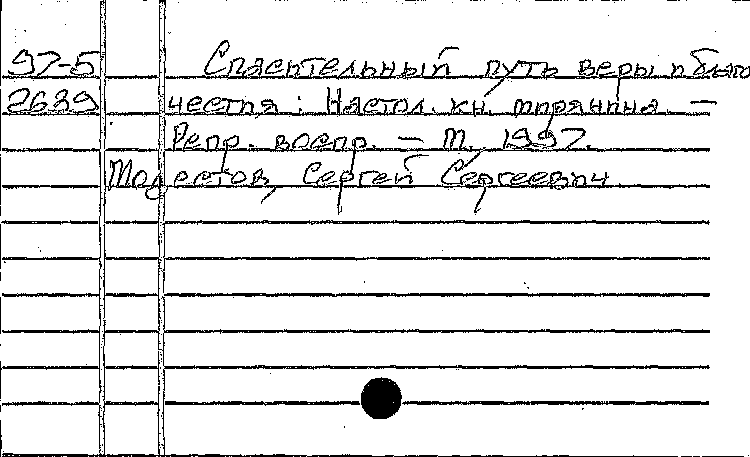 97-5 Спасительный путь веры и благо
2639 честия : Настол. кн. мирянина. —
Репр. воспр. — М., 1997.
Модестов, Сергей Сергеевич